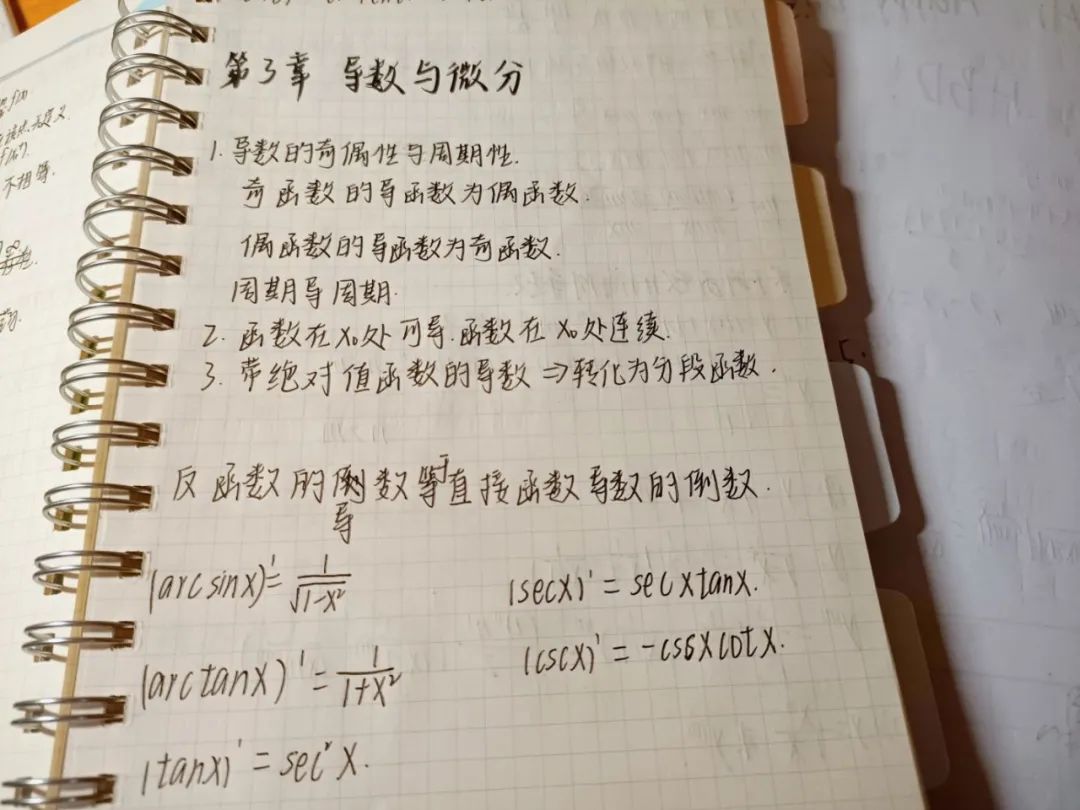 第3章 导数与微分
1. 导数的奇偶性与周期性.
奇函数的导函数为偶函数.
偶函数的导函数为奇函数.
周期导周期.
2. 函数在x₀处可导.函数在x₀处连续.
3. 带绝对值函数的导数⇒转化为分段函数.
反函数的倒数等于直接函数导数的倒数.
导
(arcsinx)'=1/√(1-x²)
(secx)'=secxtanx.
(arctanx)'=1/(1+x²)
(cscx)'=-cscxcotx.
(tanx)'=sec²x.
不相等.